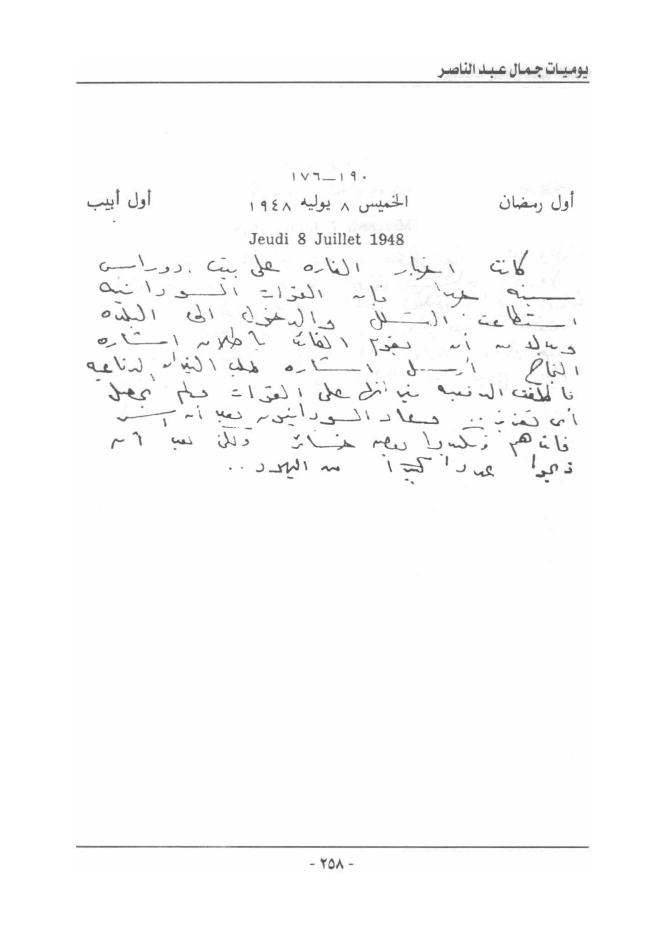 يوميات جمال عبد الناصر
١٩٠ــ١٧٦
أول رمضان الخميس ٨ يوليه ١٩٤٨ أول أبيب
Jeudi 8 Juillet 1948
كانت اخبار الغاره على بيت دوراس
سيئه جدا فان القوات السودانيه
استطاعت التسلل والدخول الى البلده
وبدلا من أن يقوم القائد باطلاق اشاره
النجاح أرسل اشاره طلب النيران الدفاعيه
فاطلقت المدفعيه نيرانها على القوات ولم يحصل
أى تعزيز .. وعاد السودانيون بعد أن
قائدهم وتكبدوا بعض خسائر ولكن بعد أن
ذبحوا عددا كبيرا من اليهود ..
- ٢٥٨ -